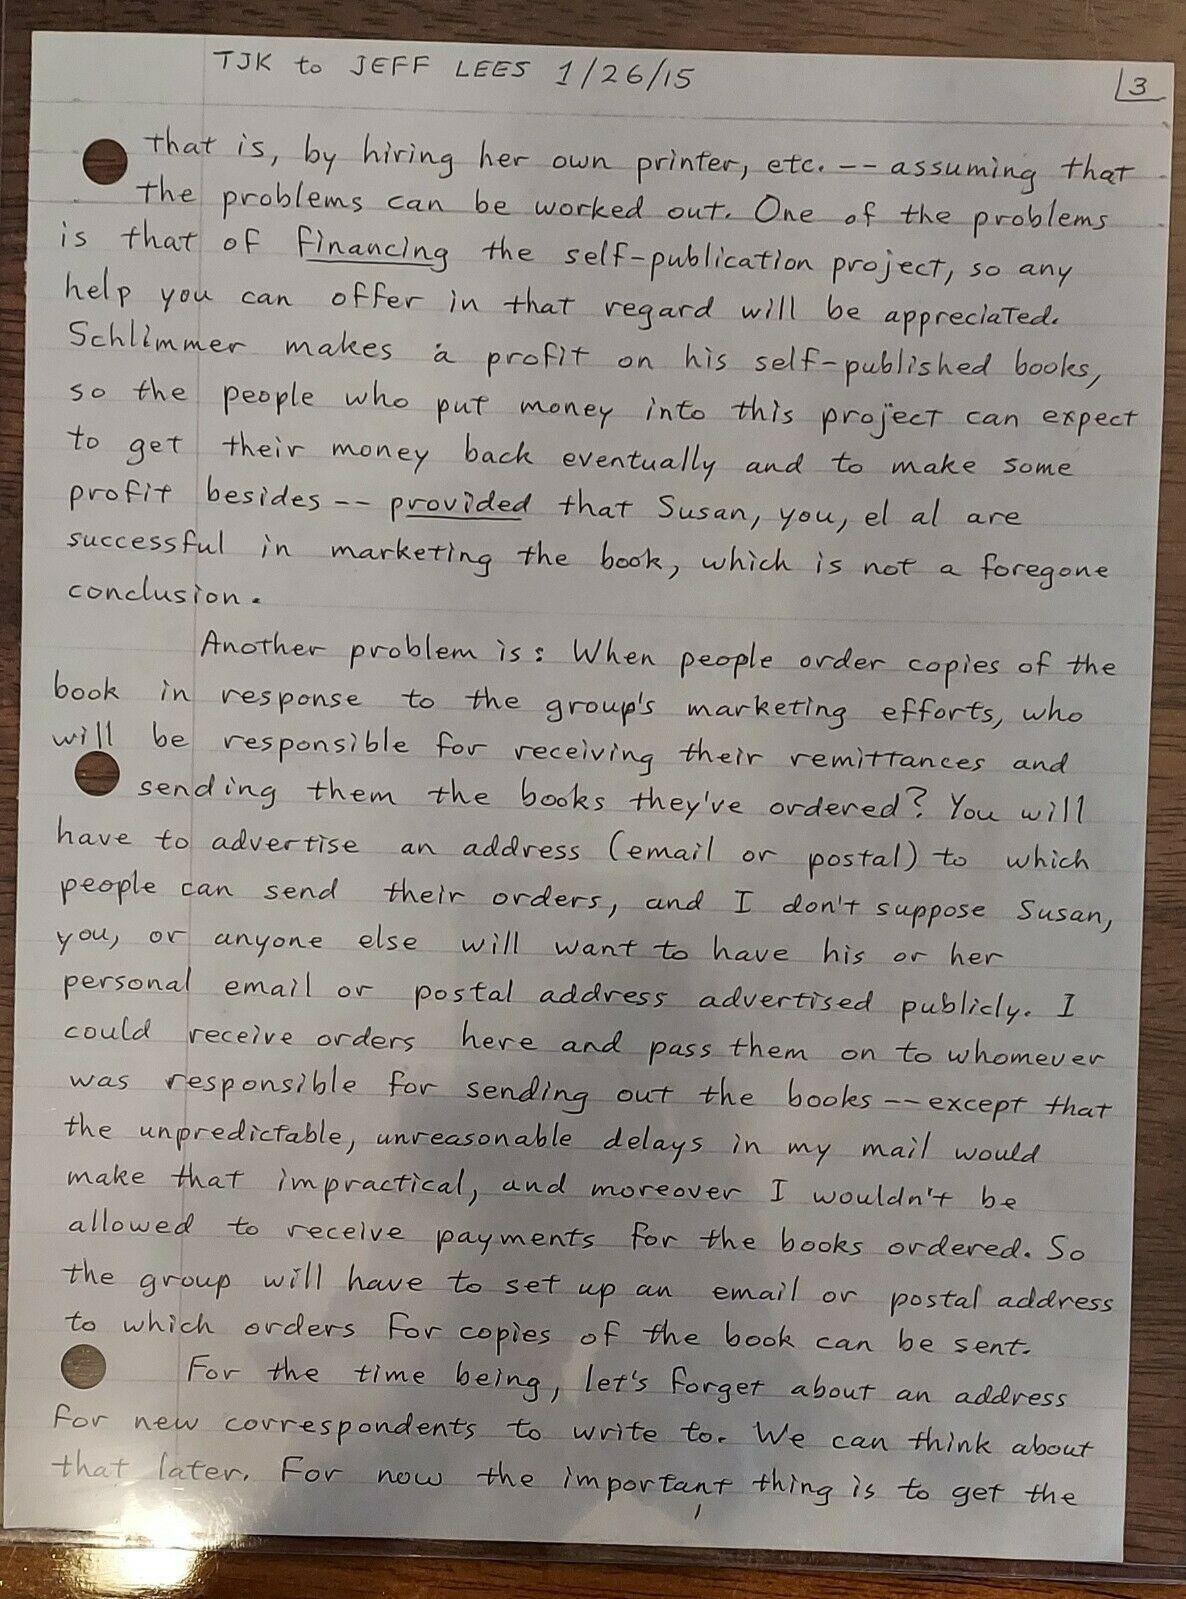 TJK to JEFF LEES 1/26/15
3
that is, by hiring her own printer, etc. -- assuming that
the problems can be worked out. One of the problems
is that of financing the self-publication project, so any
help you can offer in that regard will be appreciated.
Schlimmer makes a profit on his self-published books,
so the people who put money into this project can expect
to get their money back eventually and to make some
profit besides -- provided that Susan, you, el al are
successful in marketing the book, which is not a foregone
conclusion.
Another problem is: When people order copies of the
book in response to the group's marketing efforts, who
will be responsible for receiving their remittances and
sending them the books they've ordered? You will
have to advertise an address (email or postal) to which
people can send their orders, and I don't suppose Susan,
you, or anyone else will want to have his or her
personal email or postal address advertised publicly. I
could receive orders here and pass them on to whomever
was responsible for sending out the books -- except that
the unpredictable, unreasonable delays in my mail would
make that impractical, and moreover I wouldn't be
allowed to receive payments for the books ordered. So
the group will have to set up an email or postal address
to which orders for copies of the book can be sent.
For the time being, let's forget about an address
for new correspondents to write to. We can think about
that later. For now the important thing is to get the